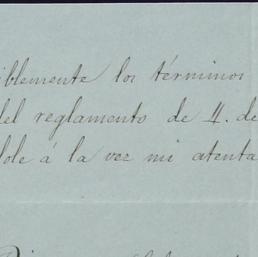 iblemente los términos
del reglamento de 4. de
dole á la vez mi atenta